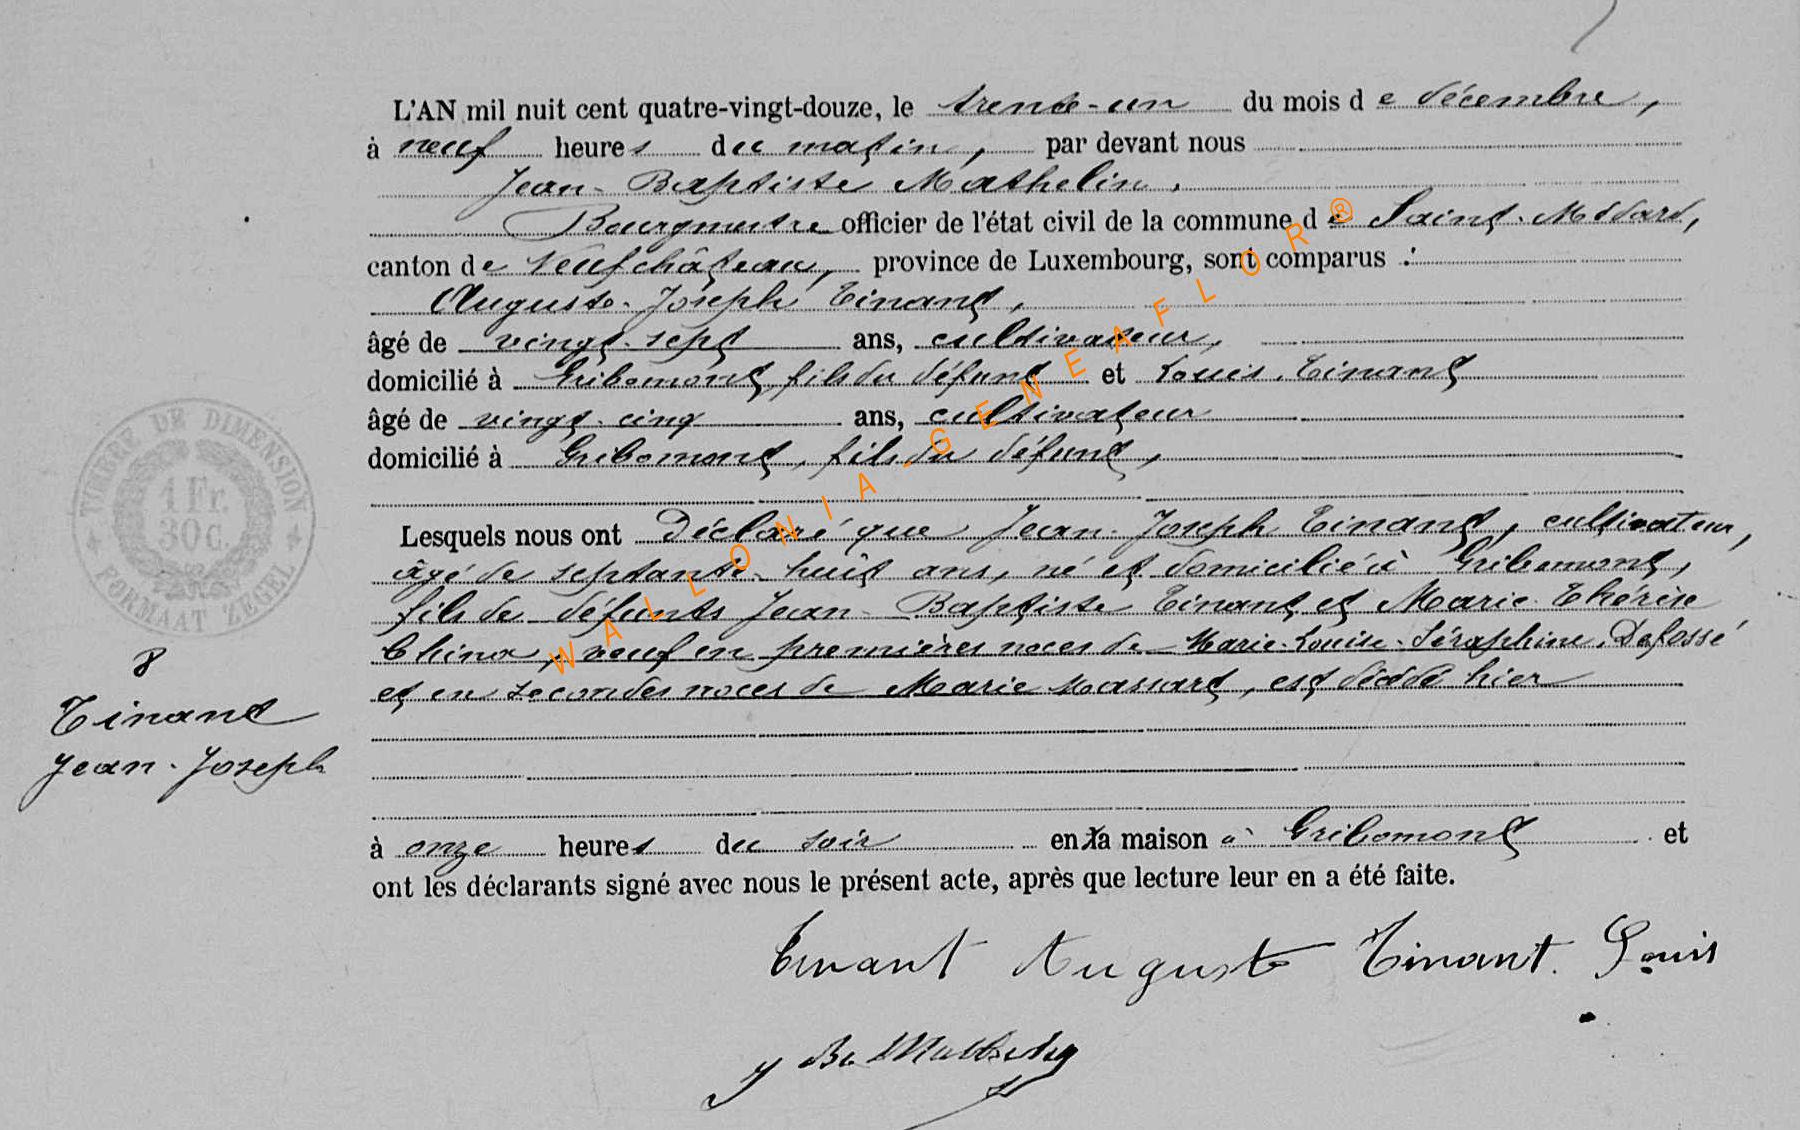 L'AN mil huit cent quatre-vingt-douze, le trente-un du mois de décembre,
à neuf heures du matin, par devant nous
Jean-Baptiste Mathelin,
Bourgmestre officier de l'état civil de la commune de Saint-Médard,
canton de Neufchâteau, province de Luxembourg, sont comparus :
Auguste-Joseph Tinant,
âgé de vingt-sept ans, cultivateur,
domicilié à Gribomont, fils du défunt et Louis Tinant
âgé de vingt-cinq ans, cultivateur
domicilié à Gribomont, fils du défunt,
Lesquels nous ont déclaré que Jean-Joseph Tinant, cultivateur,
âgé de septante-huit ans, né et domicilié à Gribomont,
fils de défunts Jean-Baptiste Tinant et Marie-Thérèse
China, veuf en premières noces de Marie-Louise-Séraphine Defossé
et en secondes noces de Marie Massart, est décédé hier
à onze heures du soir en sa maison à Gribomont et
ont les déclarants signé avec nous le présent acte, après que lecture leur en a été faite.
Tinant Auguste Tinant Louis
J Bte Mathelin
8
Tinant
Jean-Joseph
TIMBRE DE DIMENSION
1 Fr.
30 C.
FORMAAT ZEGEL
WALLONIA-GENEAFLOR®